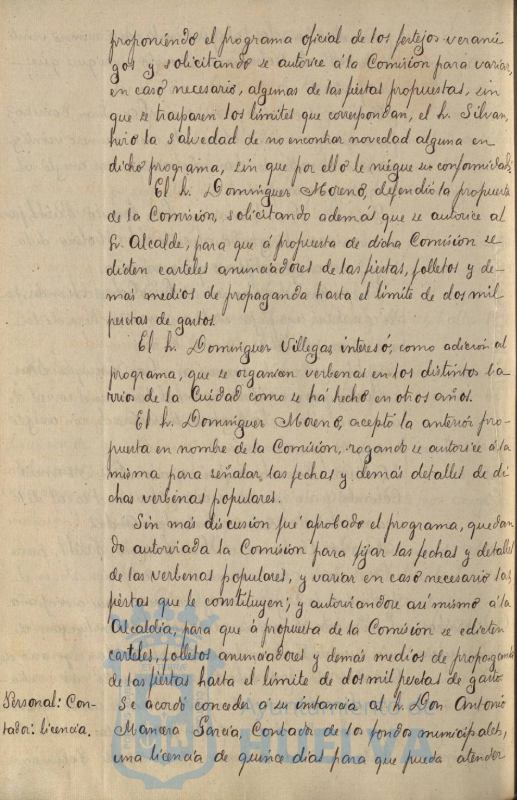 proponiendo el programa oficial de los festejos veranie
gos y solicitando se autorice á la Comisión para variar,
en caso necesario, algunas de las fiestas propuestas, sin
que se traspasen los límites que correspondan, el Sr. Silvan,
hizo la salvedad de no encontrar novedad alguna en
dicho programa, sin que por ello le niegue su conformidad.
El Sr. Domínguez Moreno, defendió la propuesta
de la Comisión, solicitando además que se autorice al
Sr. Alcalde, para que á propuesta de dicha Comisión se
editen carteles anunciadores de las fiestas, folletos y de-
más medios de propaganda hasta el límite de dos mil
pesetas de gastos.
El Sr. Domínguez Villegas, interesó, como adición al
programa, que se organicen verbenas en los distintos ba
rrios de la Ciudad como se há hecho en otros años.
El Sr. Domínguez Moreno, aceptó la anterior pro-
puesta en nombre de la Comisión, rogando se autorice á la
misma para señalar las fechas y demás detalles de di
chas verbenas populares.
Sin más discusión fué aprobado el programa, quedan
do autorizada la Comisión para fijar las fechas y detalles
de las verbenas populares, y variar en caso necesario las
fiestas que le constituyen; y autorizandose asi mismo á la
Alcaldía, para que á propuesta de la Comisión se editen
carteles, folletos anunciadores y demás medios de propaganda
de las fiestas hasta el límite de dos mil pesetas de gastos.
Personal: Con-
tador: licencia.
Se acordó conceder á su instancia al Sr. Don Antonio
Mancera García, Contador de los fondos municipales,
una licencia de quince dias para que pueda atender
Ayuntamiento de
HUELVA